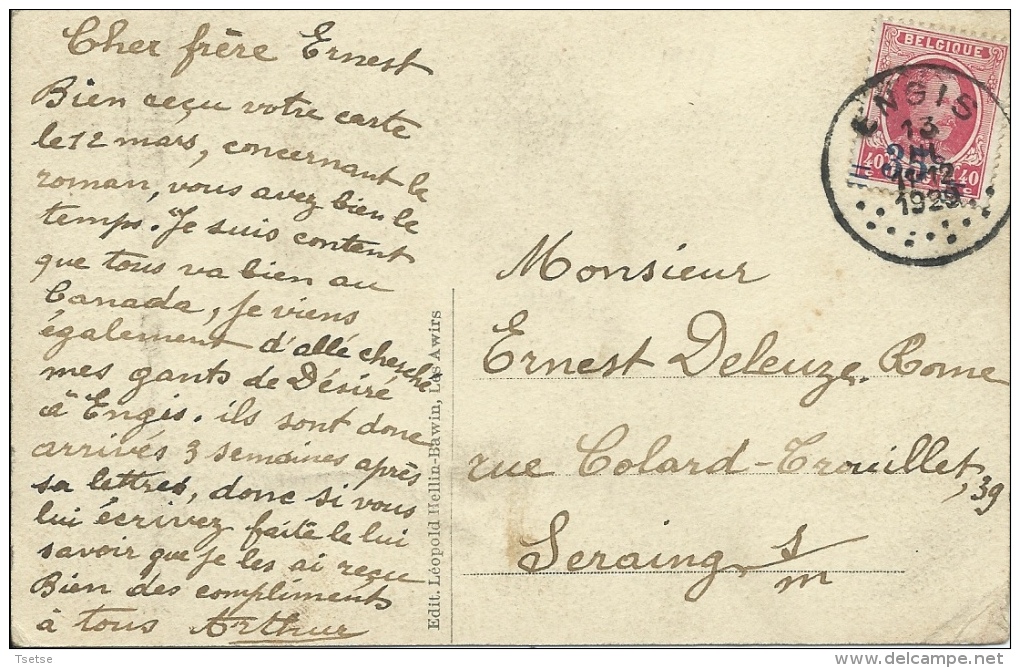 Cher frère Ernest
Bien reçu votre carte
le 12 mars, concernant le
roman, vous avez bien le
temps. Je suis content
que tous va bien au
Canada, Je viens
également d'allé cherché
mes gants de Désiré
à Engis. ils sont donc
arrivés 3 semaines après
sa lettres, donc si vous
lui écrivez faite le lui
savoir que je les ai reçu
Bien des compliments
à tous Arthur
Edit. Léopold Hellin-Bawin, Les Awirs
BELGIQUE
40 35c 40
ENGIS
13
12
1929
Monsieur
Ernest Deleuze. Rome
rue Colard-Trouillet, 39
Seraing s/m
Tsetse
delcampe.net